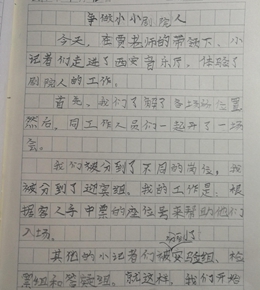 争做小小剧院人
今天，在贾老师的带领下，小
记者们走进了西安音乐厅，体验了
剧院人的工作。
首先，我们了解了各场的位置
然后，同工作人员们一起开了一场
会。
我们被分到了不同的岗位，我
被分到了迎宾组。我的工作是，根
据客人手中票的座位号来帮助他们
入场。
其他的小记者们被
分到了
安验组、检
票组和答疑组。就这样，我们开始